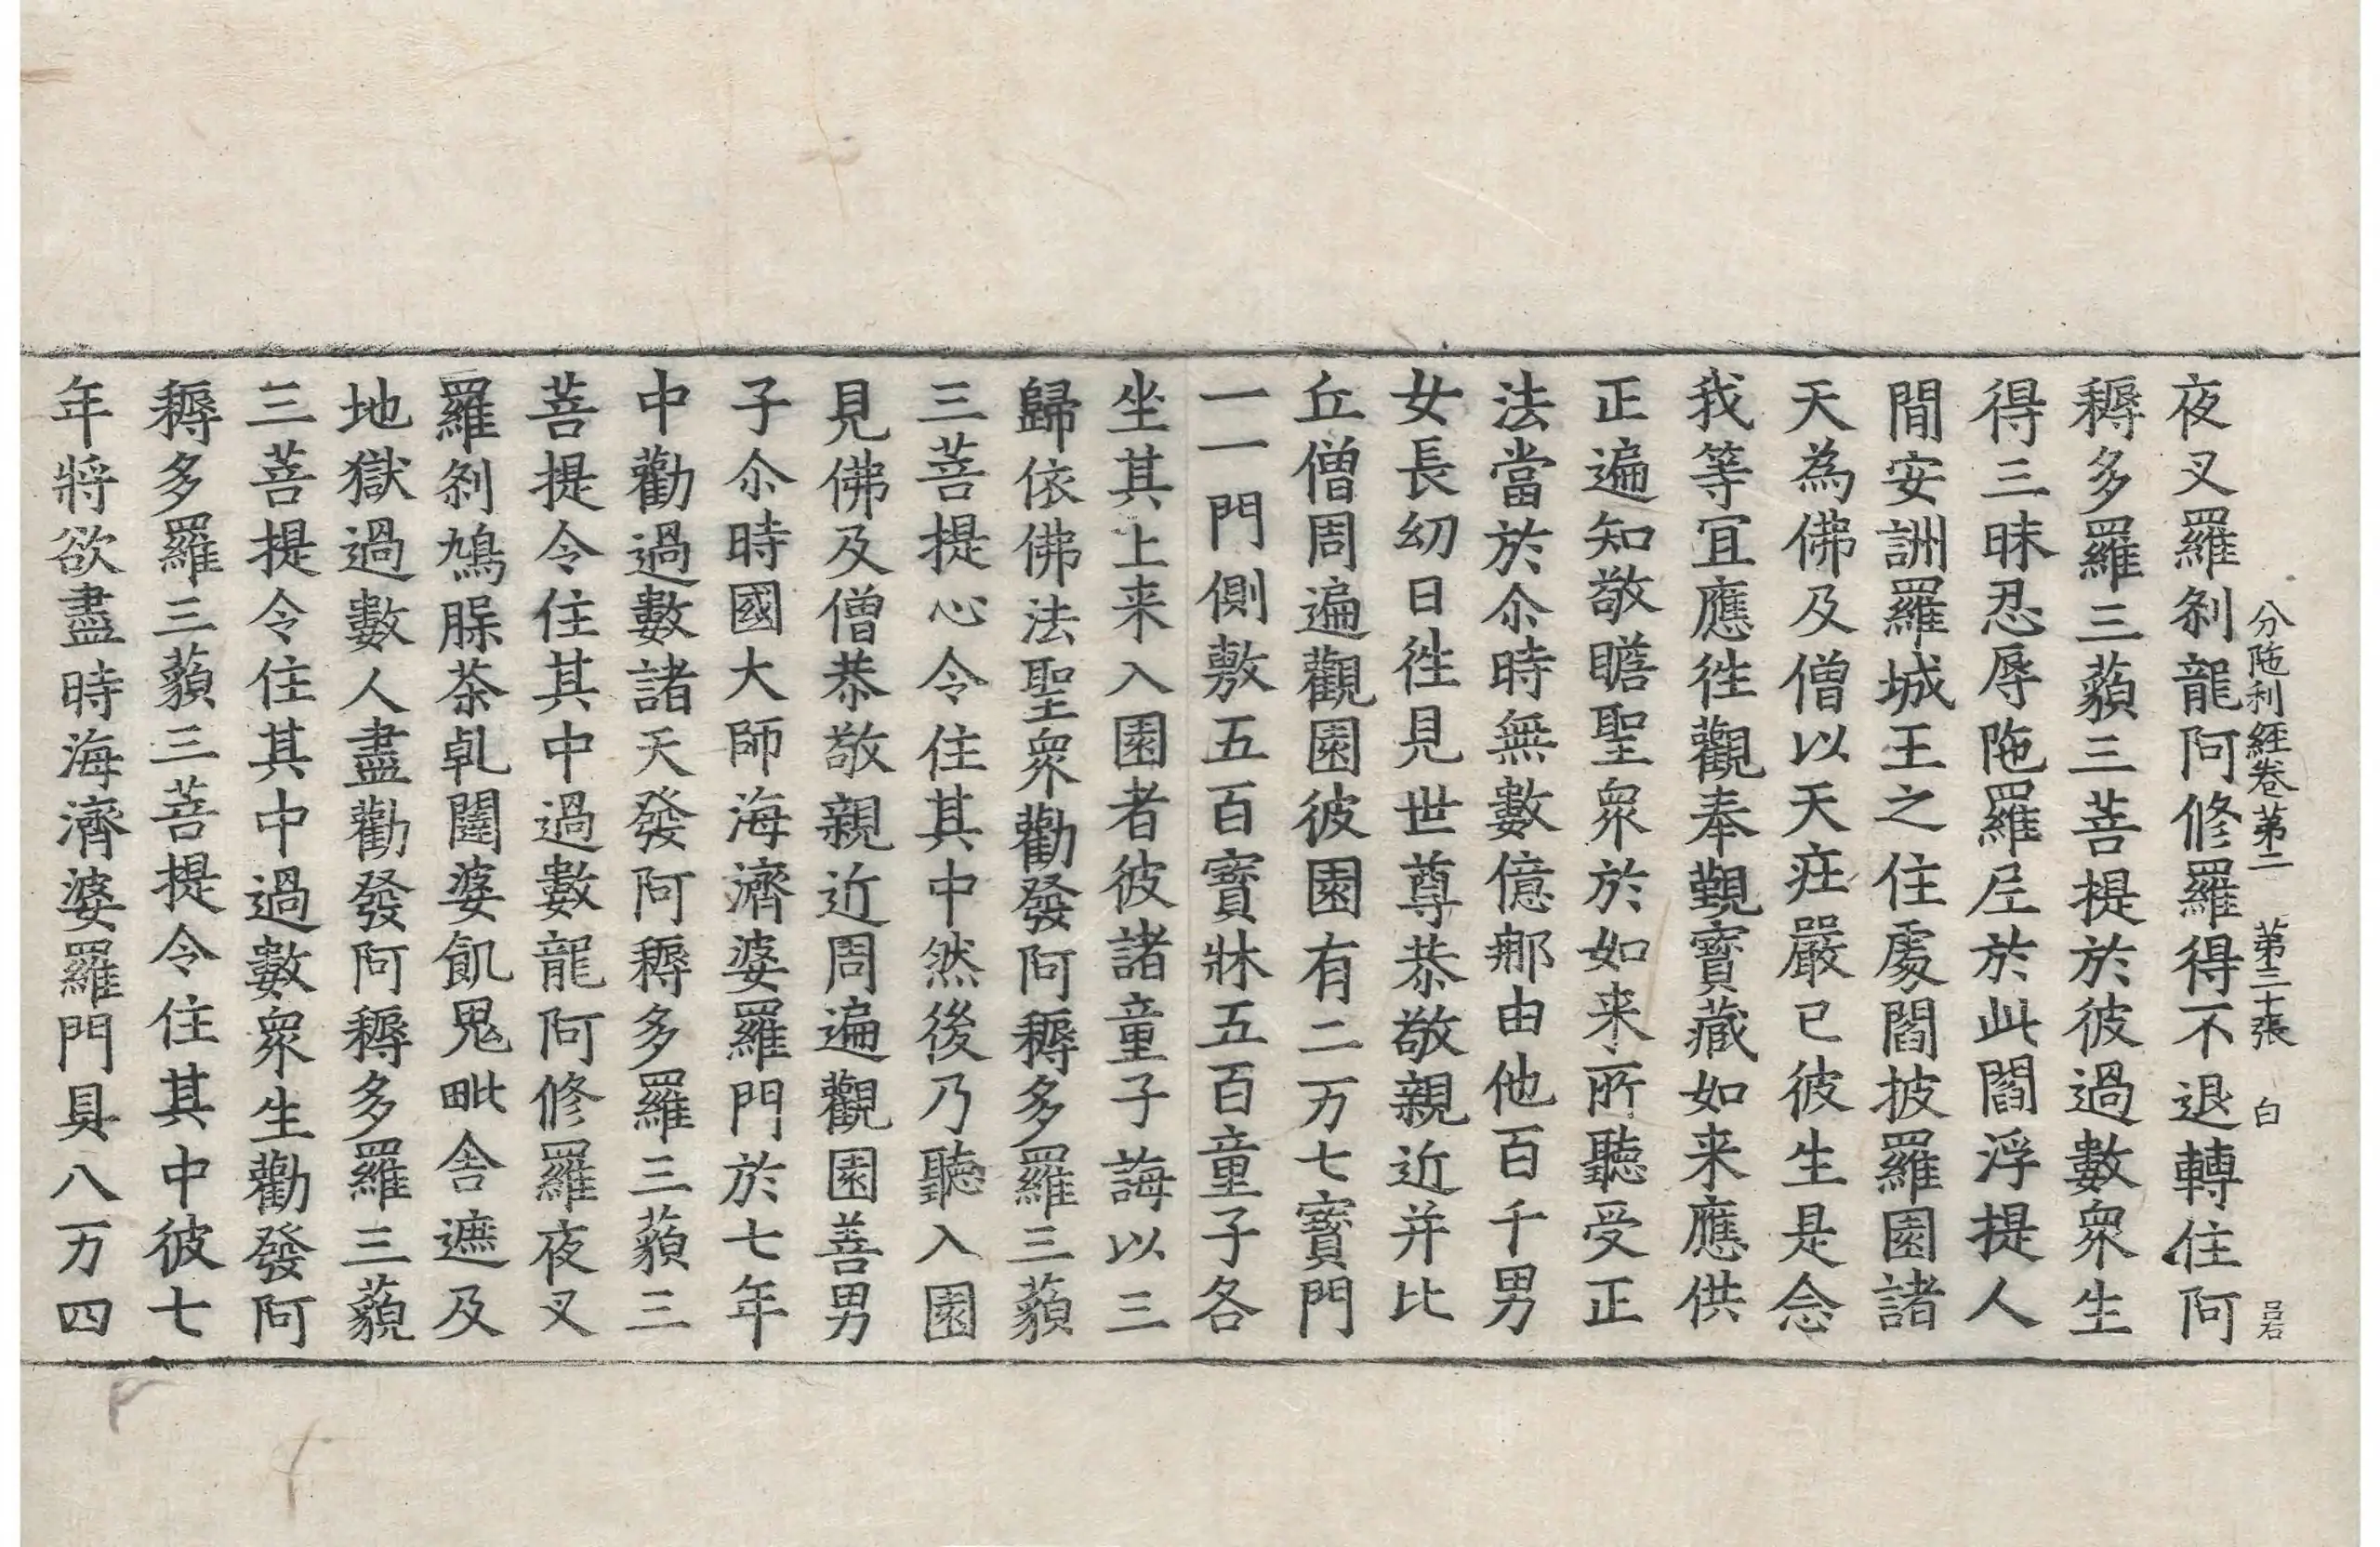 分陁利經卷第二　第三十張　白　呂石
夜叉羅剎龍阿修羅得不退轉住阿
耨多羅三藐三菩提於彼過數衆生
得三昧忍辱陁羅𡰱於此閻浮提人
間安訓羅城王之住處閻披羅園諸
天為佛及僧以天疘嚴已彼生是念
我等宜應徃觀奉觐寶藏如来應供
正遍知敬瞻聖衆於如来所聽受正
法當於尒時無數億那由他百千男
女長幼日徃見世尊恭敬親近并比
丘僧周遍觀園彼園有二万七寶門
一一門側敷五百寶牀五百童子各
坐其上来入園者彼諸童子誨以三
歸依佛法聖衆勸發阿耨多羅三藐
三菩提心令住其中然後乃聽入園
見佛及僧恭敬親近周遍觀園善男
子尒時國大師海濟婆羅門於七年
中勸過數諸天發阿耨多羅三藐三
菩提令住其中過數龍阿修羅夜叉
羅剎鳩脲茶乹闥婆飢鬼毗舍遮及
地獄過數人盡勸發阿耨多羅三藐
三菩提令住其中過數衆生勸發阿
耨多羅三藐三菩提令住其中彼七
年將欲盡時海濟婆羅門具八万四